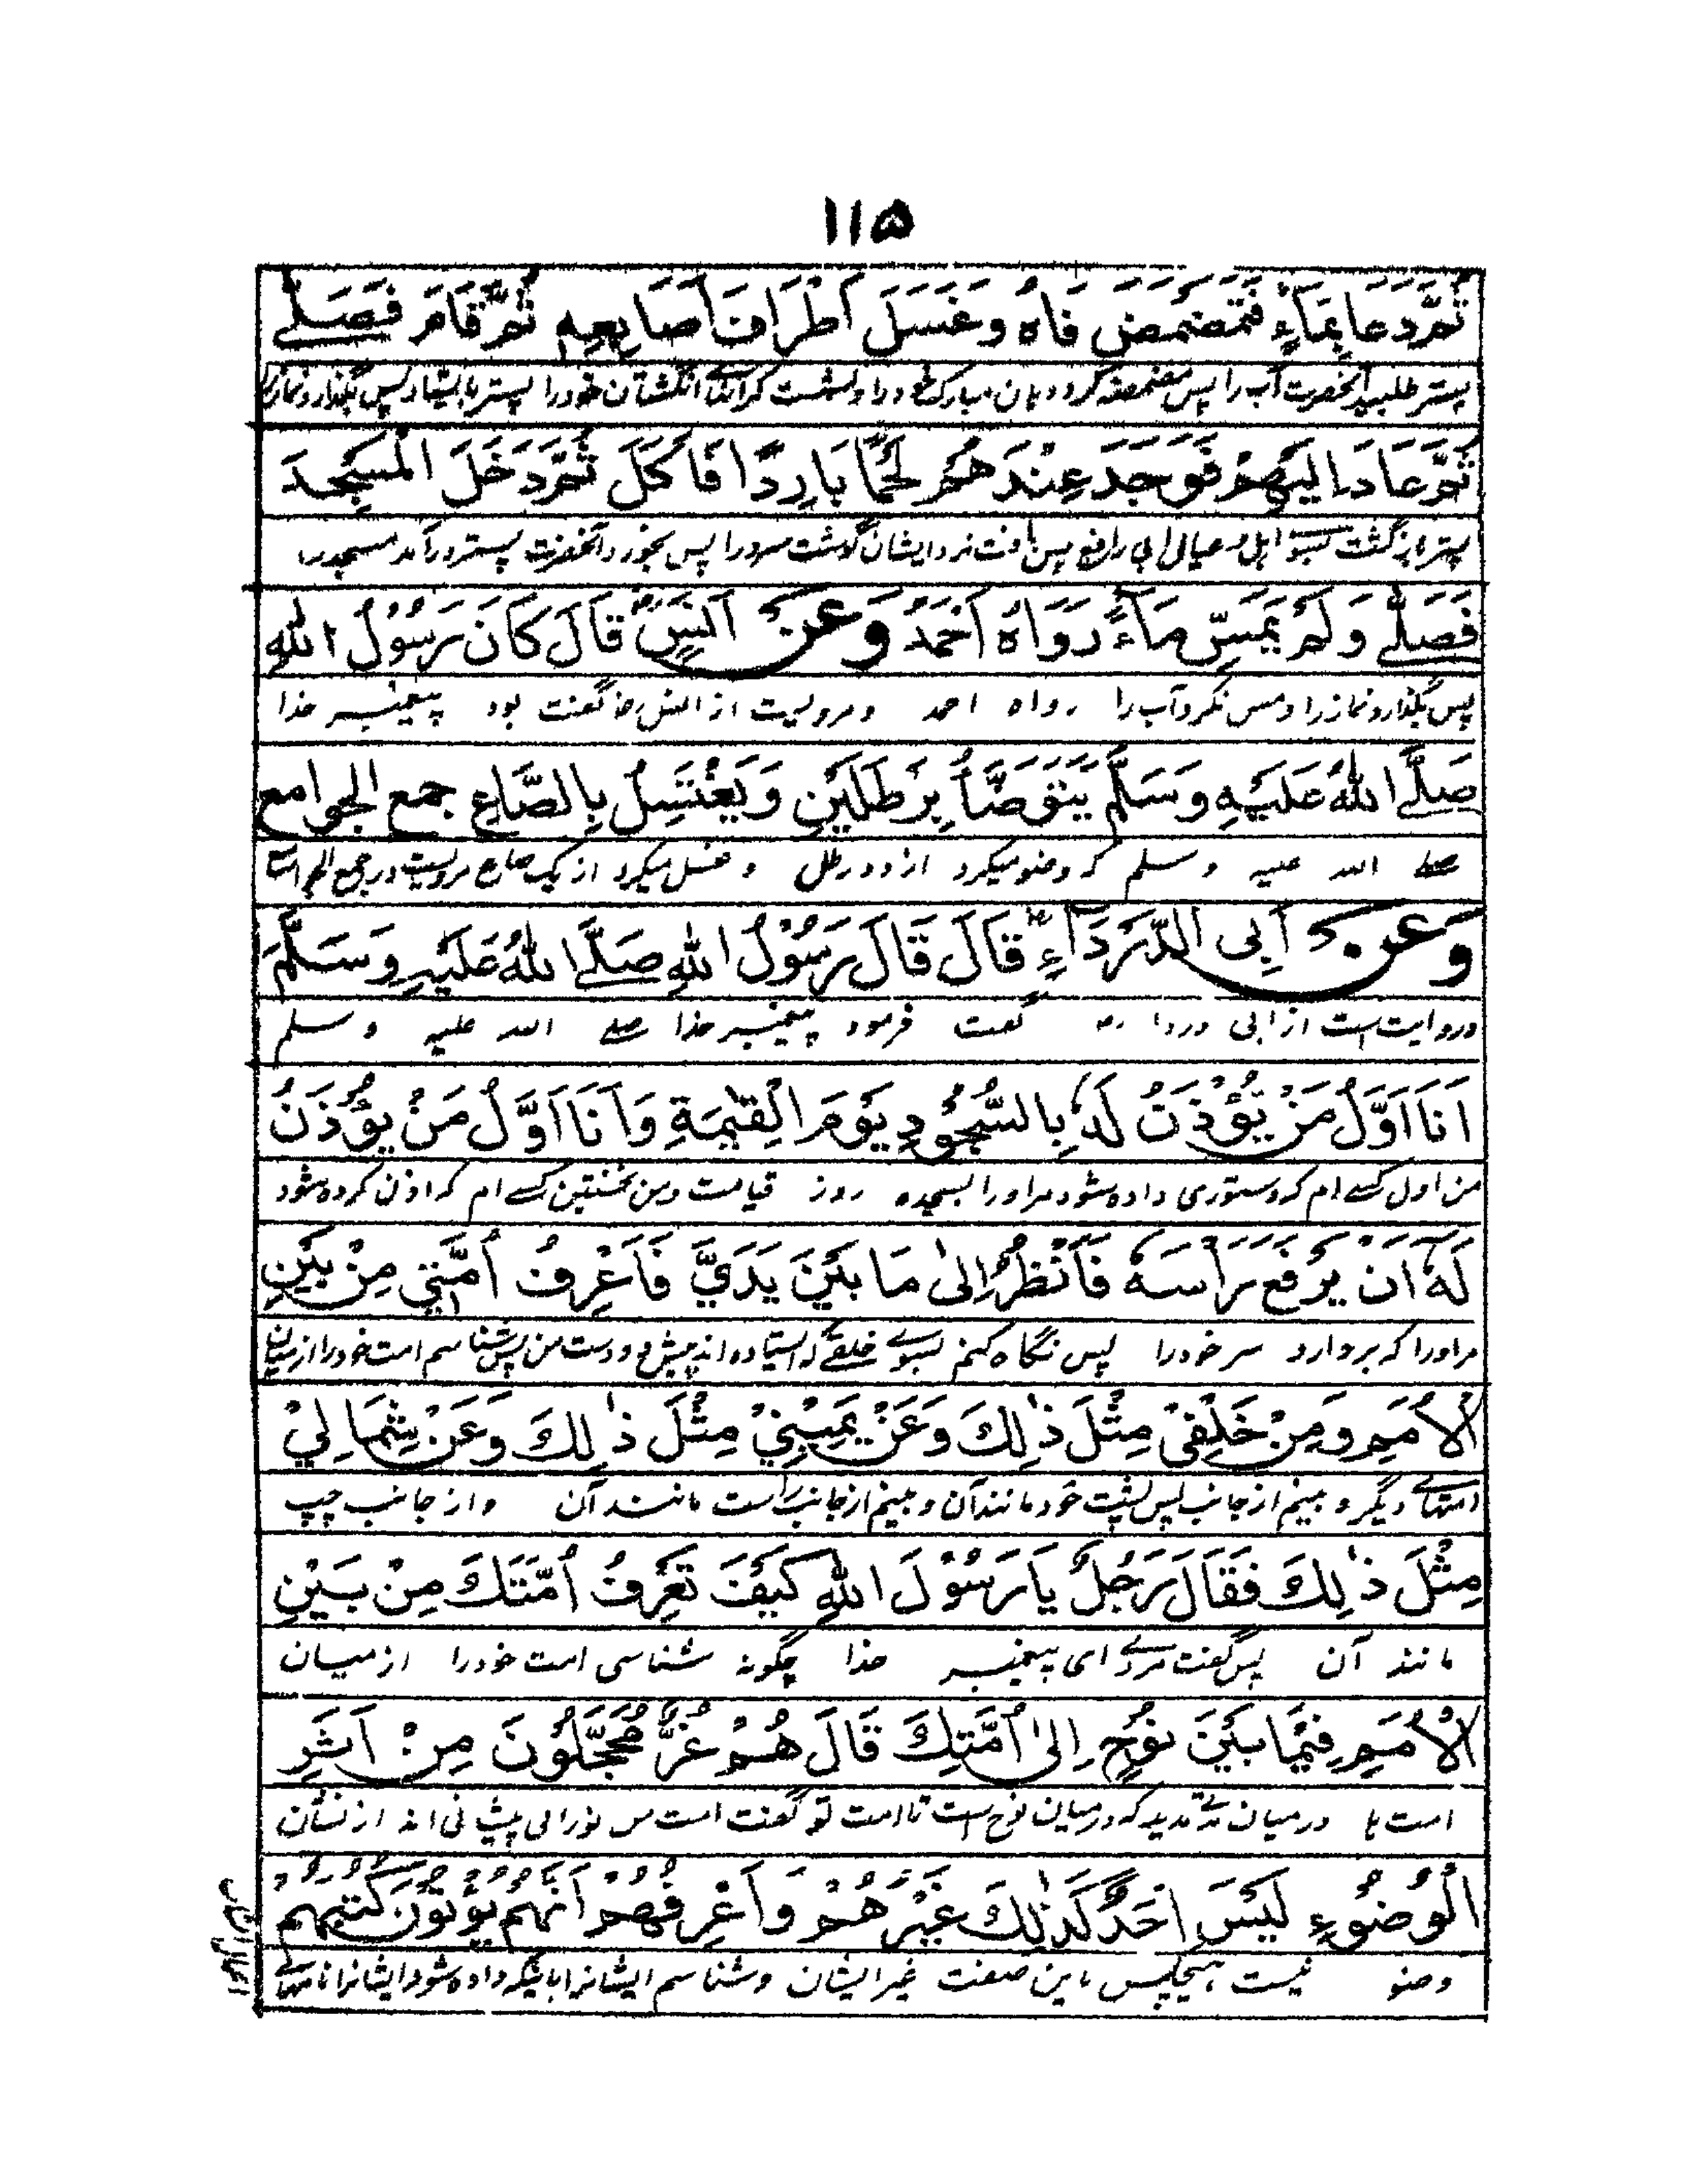 ۱۱۵
ثُمَّ دَعَا بِمَاءٍ فَتَمَضْمَضَ فَاهُ وَغَسَلَ أَطْرَافَ أَصَابِعِهِ ثُمَّ قَامَ فَصَلّٰے
پستر طلبید آنحضرت آب را پس مضمضه کرد دهان مبارک خود را و شست کرانهاے انگشتان خود را پستر بایستاد پس بگذارد نماز را
ثُمَّ عَادَ اِلَيْهِمْ فَوَجَدَ عِنْدَهُمْ لَحْمًا بَارِدًا فَاَكَلَ ثُمَّ دَخَلَ الْمَسْجِدَ
پستر بازگشت بسوے اهل و عیال ابی رافع پس یافت نزد ایشان گوشت سرد را پس بخورد آنحضرت پستر درآمد مسجد را
فَصَلّٰے وَلَمْ يَمَسَّ مَاءً رَوَاهُ اَحْمَدُ وَعَنْ اَنَسٍ رض قَالَ كَانَ رَسُوْلُ اللهِ
پس بگذارد نماز را و مس نکرد آب را رواه احمد و مرویست از انس رضا گفت بود پیغمبر خدا
صَلَّے اللهُ عَلَيْهِ وَسَلَّمَ يَتَوَضَّأُ بِرَطْلَيْنِ وَيَغْتَسِلُ بِالصَّاعِ جمع الجوامع
صلے الله علیه وسلم که وضو میکرد از دو رطل و غسل میکرد از یک صاع مرویست در جمع الجوامع
وَعَنْ اَبِى الدَّرْدَاءِ رض قَالَ قَالَ رَسُوْلُ اللهِ صَلَّے اللهُ عَلَيْهِ وَسَلَّمَ
و روایت است از ابی دردا رض گفت فرمود پیغمبر خدا صلے الله علیه وسلم
اَنَا اَوَّلُ مَنْ يُؤْذَنُ لَهٗ بِالسُّجُوْدِ يَوْمَ الْقِيٰمَةِ وَاَنَا اَوَّلُ مَنْ يُؤْذَنُ
من اول کسے ام که دستوری داده شود مر او را بسجده روز قیامت و من نخستین کسے ام که اذن کرده شود
لَهٗ اَنْ يَرْفَعَ رَاْسَهٗ فَاَنْظُرُ اِلىٰ مَا بَيْنَ يَدَيَّ فَاَعْرِفُ اُمَّتِي مِنْ بَيْنِ
مر او را که بردارد سر خود را پس نگاه کنم بسوے خلقے که ایستاده اند پیش دو دست من پس شناسم امت خود را از میان
الْاُمَمِ وَمِنْ خَلْفِىْ مِثْلَ ذٰلِكَ وَعَنْ يَمِيْنِيْ مِثْلَ ذٰلِكَ وَعَنْ شِمَالِيْ
امتهاے دیگر و بینم از جانب پس پشت خود مانند آن و بینم از جانب راست مانند آن و از جانب چپ
مِثْلَ ذٰلِكَ فَقَالَ رَجُلٌ يَا رَسُوْلَ اللهِ كَيْفَ تَعْرِفُ اُمَّتَكَ مِنْ بَيْنِ
مانند آن پس گفت مردے ای پیغمبر خدا چگونه شناسی امت خود را از میان
الْاُمَمِ فِيْمَا بَيْنَ نُوْحٍ اِلىٰ اُمَّتِكَ قَالَ هُمْ غُرٌّ مُحَجَّلُوْنَ مِنْ اَثَرِ
امت ها در میان مدت مدید که در میان نوح است تا امت تو گفت امت من نورانی پیشانی اند از نشان
الْوُضُوْءِ لَيْسَ اَحَدٌ كَذٰلِكَ غَيْرَهُمْ وَاَعْرِفُهُمْ اَنَّهُمْ يُؤْتَوْنَ كُتُبَهُمْ
وضو نیست هیچکس باین صفت غیر ایشان و شناسم ایشان را بآنکه داده شود ایشان را نامهاے